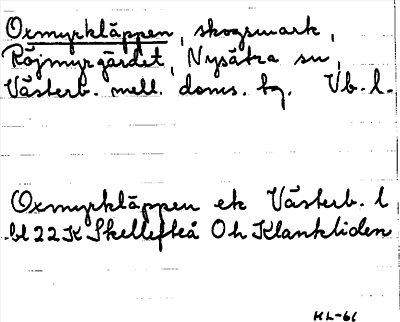 Oxmyrkläppen, skogsmark,
Röjmyrgärdet, Nysätra sn,
Västerb. mell. doms. hg. Vb. l.
Oxmyrkläppen ek Västerb. l
bl 22 K Skellefteå O h Klankliden
KL-61